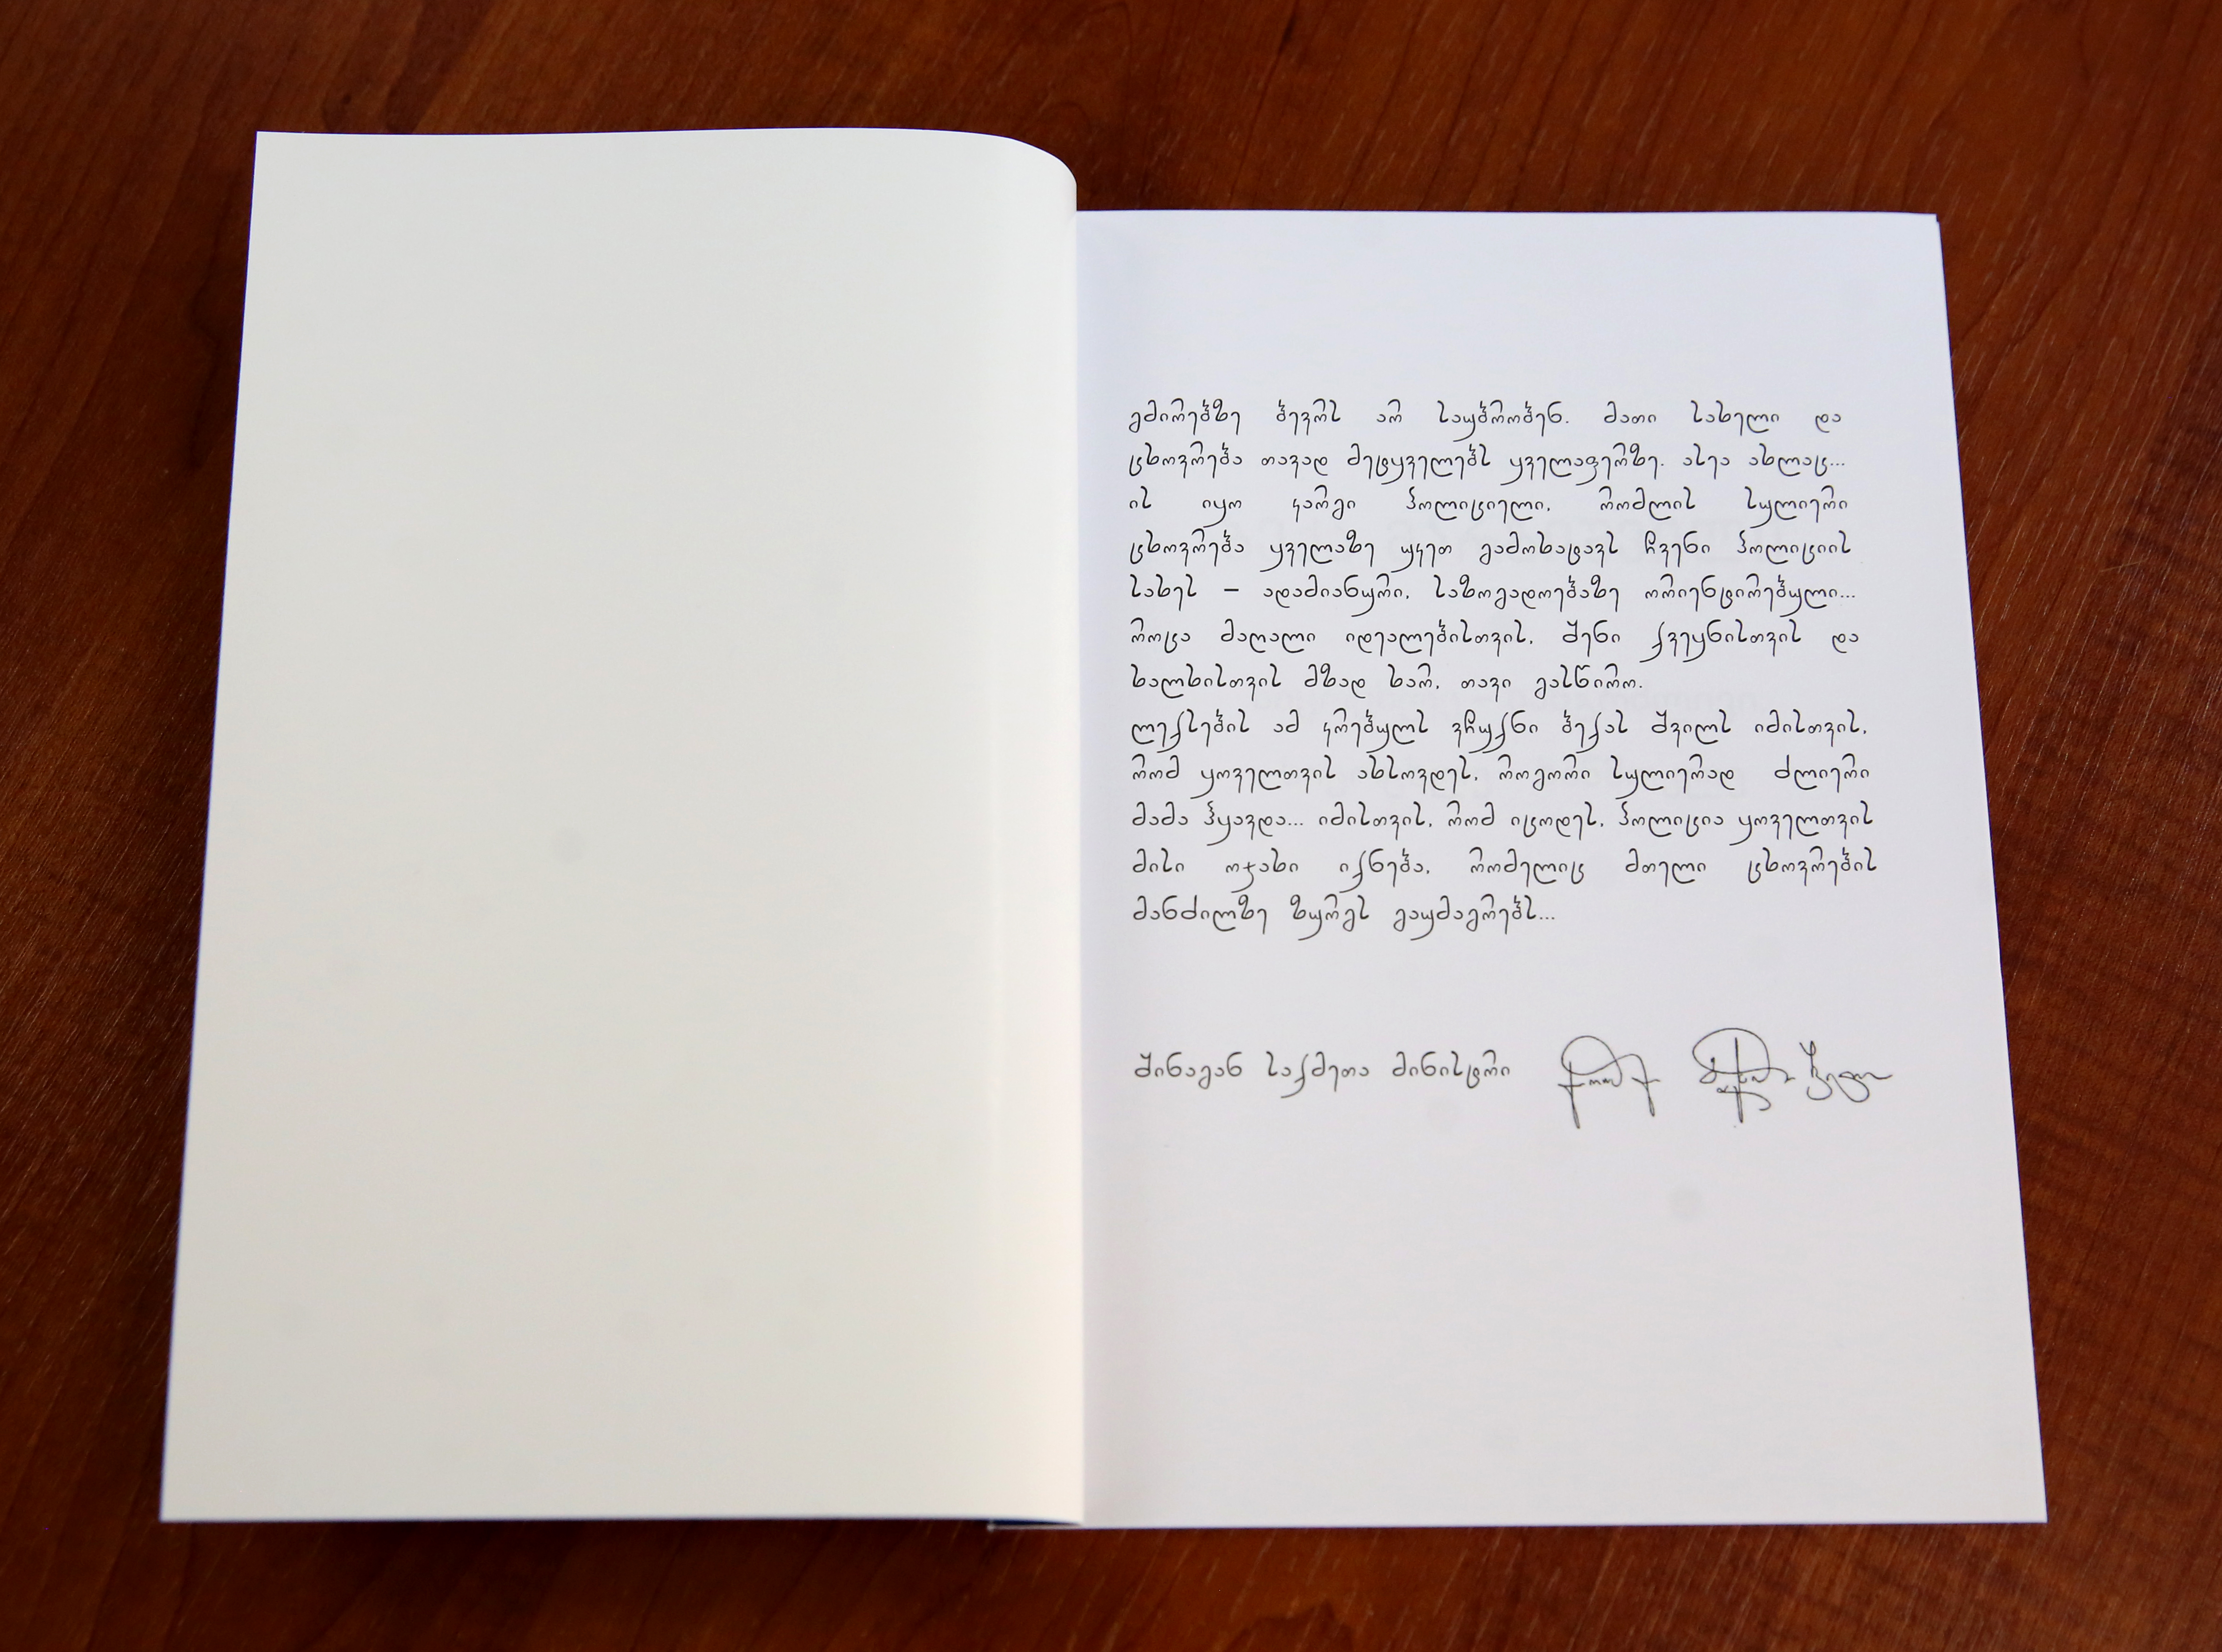 გმირებზე ბევრს არ საუბრობენ. მათი სახელი და
ცხოვრება თავად მეტყველებს ყველაფერზე. ასეა ახლაც...
ის იყო კარგი პოლიციელი, რომლის სულიერი
ცხოვრება ყველაზე უკეთ გამოხატავს ჩვენი პოლიციის
სახეს – ადამიანური, საზოგადოებაზე ორიენტირებული...
როცა მაღალი იდეალებისთვის, შენი ქვეყნისთვის და
ხალხისთვის მზად ხარ, თავი გასწირო.
ლექსების ამ კრებულს ვჩუქნი ბექას შვილს იმისთვის,
რომ ყოველთვის ახსოვდეს, როგორი სულიერად ძლიერი
მამა ჰყავდა... იმისთვის, რომ იცოდეს, პოლიცია ყოველთვის
მისი ოჯახი იქნება, რომელიც მთელი ცხოვრების
მანძილზე ზურგს გაუმაგრებს...
შინაგან საქმეთა მინისტრი